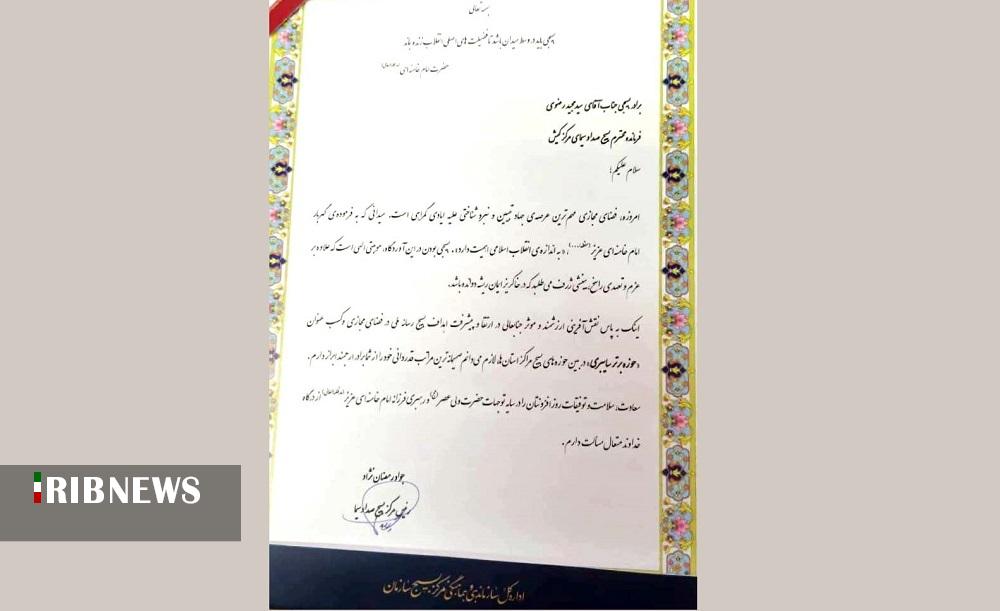 بسمه تعالی
بسیجی باید در وسط میدان باشد تا فضیلت های اصلی انقلاب زنده بماند
حضرت امام خامنه ای (مدظله العالی)
برادر بسیجی جناب آقای سید مجید رضوی
فرمانده محترم بسیج صدا و سیمای مرکز کیش
سلام علیکم؛
امروزه، فضای مجازی مهم ترین عرصه ی جهاد تبیین و نبرد شناختی علیه ایادی گمراهی است. میدانی که به فرموده ی گهربار
امام خامنه ای عزیز «به اندازه ی انقلاب اسلامی اهمیت دارد». بسیجی بودن در این آوردگاه، موهبتی الهی است که علاوه بر
عزم و تعهدی راسخ، بینشی ژرف می طلبد که در خاکریز ایمان ریشه دوانده باشد.
اینک به پاس نقش آفرینی ارزشمند و موثر جنابعالی در ارتقا و پیشرفت اهداف بسیج رسانه ملی در فضای مجازی و کسب عنوان
«حوزه برتر سایبری» در بین حوزه های بسیج مراکز استان ها، لازم می دانم صمیمانه ترین مراتب قدردانی خود را از شما برادر ارجمند ابراز دارم.
سعادت، سلامت و توفیقات روز افزونتان را در سایه توجهات حضرت ولی عصر (عج) و رهبری فرزانه امام خامنه ای عزیز (مدظله العالی) از درگاه
خداوند متعال مسألت دارم.
جواد رمضان نژاد
رئیس مرکز بسیج صدا و سیما
اداره کل سازماندهی و هماهنگی مرکز بسیج سازمان
RIBNEWS